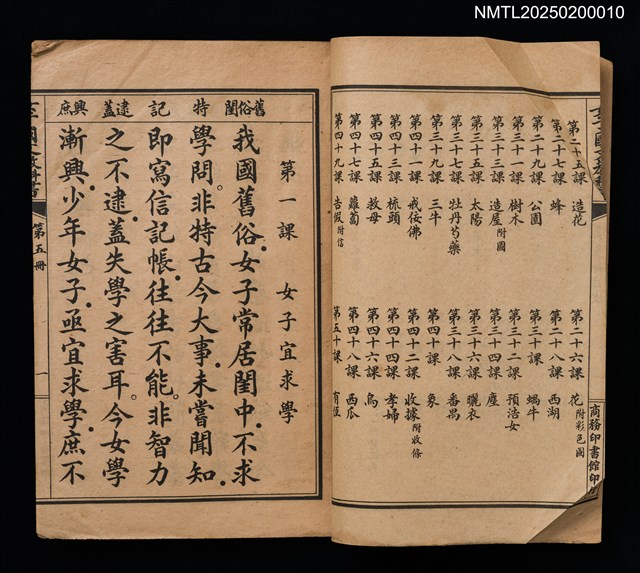 NMTL20250200010
商務印書館印
第二十五課 造花 第二十六課 花附彩色圖
第二十七課 蜂 第二十八課 西湖
第二十九課 公園 第三十課 蝸牛
第三十一課 樹木 第三十二課 預浩女
第三十三課 造屋附圖 第三十四課 塵
第三十五課 太陽 第三十六課 曬衣
第三十七課 牡丹芍藥 第三十八課 番禺
第三十九課 三牛 第四十課 象
第四十一課 戒佞佛 第四十二課 收據附收條
第四十三課 梳頭 第四十四課 孝婦
第四十五課 教母 第四十六課 烏
第四十七課 蘿蔔 第四十八課 西瓜
第四十九課 告假附信 第五十課 有
舊俗閨
特
記
逮蓋
興庶
第一課 女子宜求學
我國舊俗。女子常居閨中。不求
學問。非特古今大事。未嘗聞知。
即寫信記帳。往往不能。非智力
之不逮。蓋失學之害耳。今女學
漸興。少年女子亟宜求學。庶不
國 教科書
第五冊
一